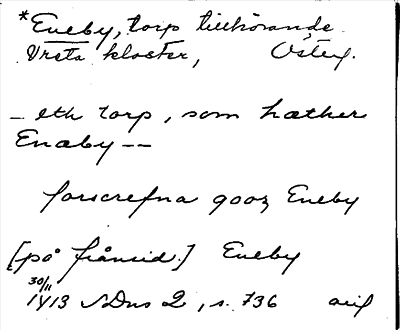 *Eneby, torp tillhörande
Vreta kloster, Östeg.
– eth torp, som hether
Enæby --
forscrefna gooz Eneby
[på frånsid.] Eneby
30/11
1413 SDns 2, s. 736 avif